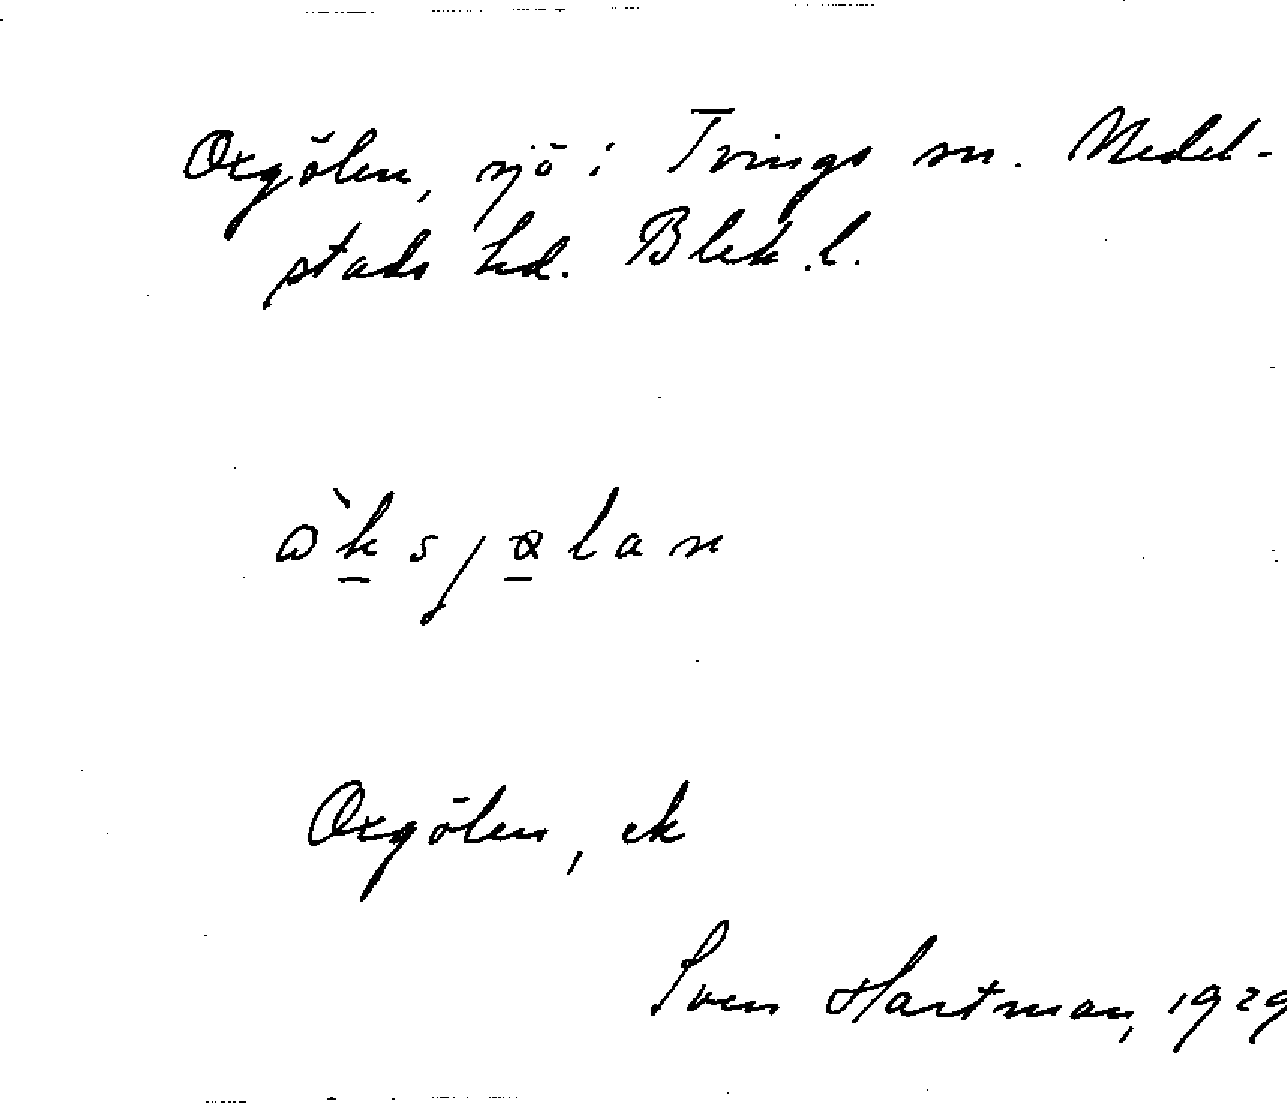 Oxgölen, sjö i Tvings sn. Medel-
stads hd. Blek. l.
Oxgölen, ek
Sven Hartman, 1929